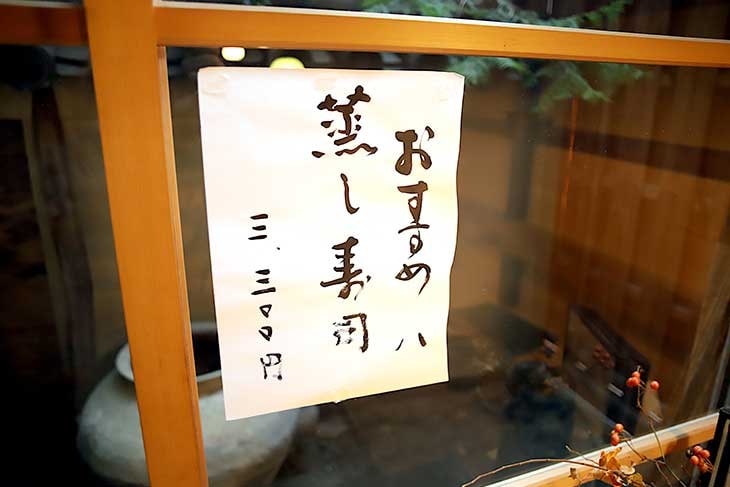 おすすめハ
蒸し寿司
三、三〇〇円